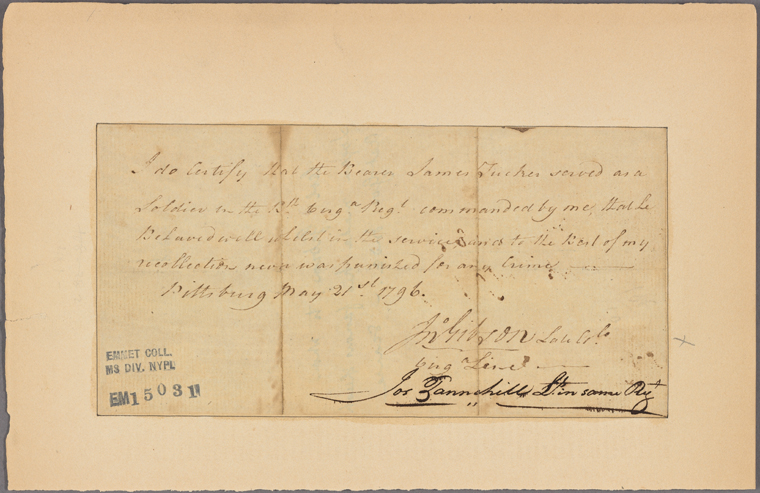 I do Certify that the Bearer James Tucker served as a
Soldier in the Virg.a Reg.t commanded by me, that he
Behaved well whilst in the service, and to the Best of my
recollection never was punished for any Crime
Pittsburg May 21st 1796.
Jno Gibson Late Col.
Virg.a Line
Jos Tannehill Lt. in same Regt
EMMET COLL.
MS DIV. NYPL
EM15031